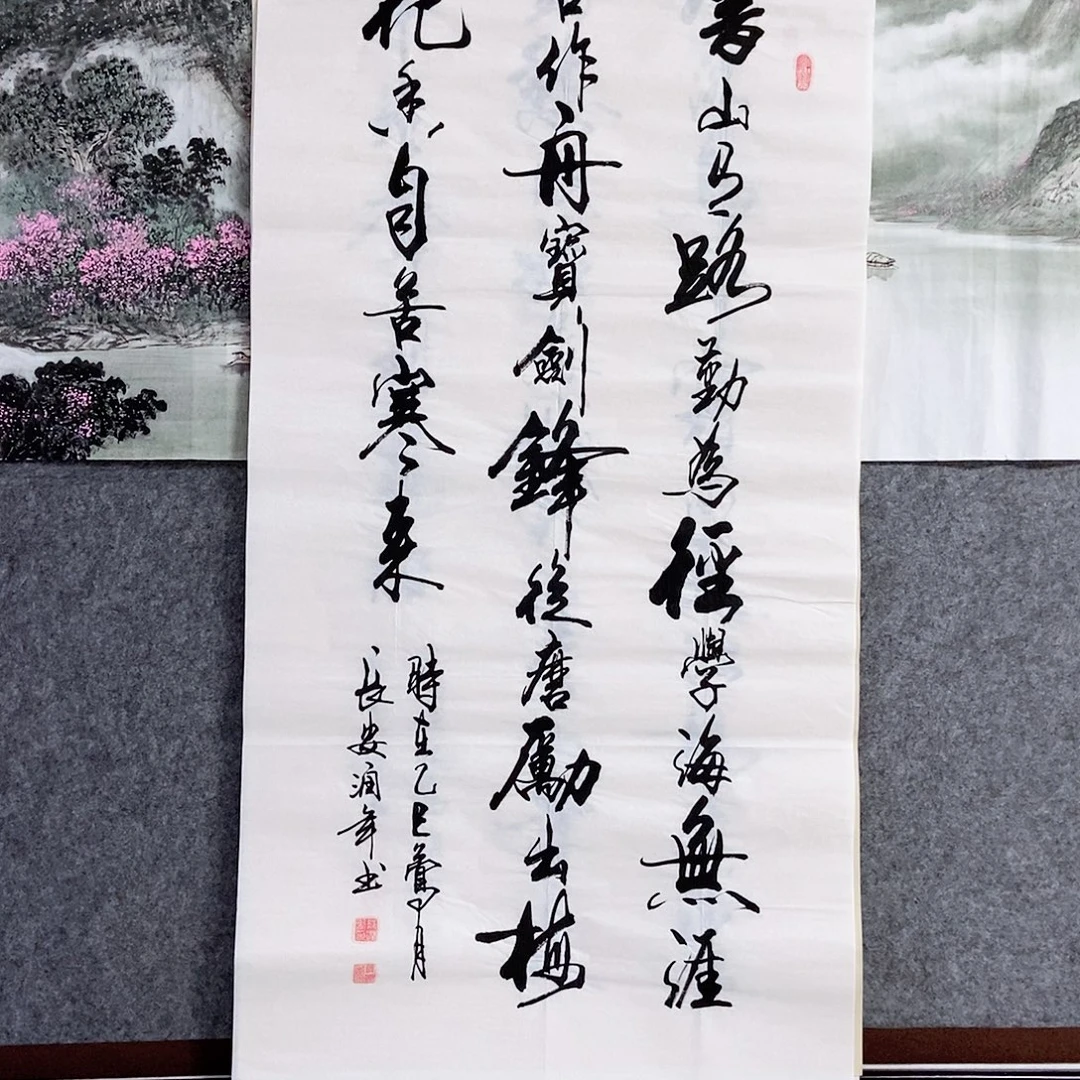 書山有路勤為徑學海無涯
苦作舟寶劍鋒從磨勵出梅
花香自苦寒來
時在乙巳月
長安潤年書